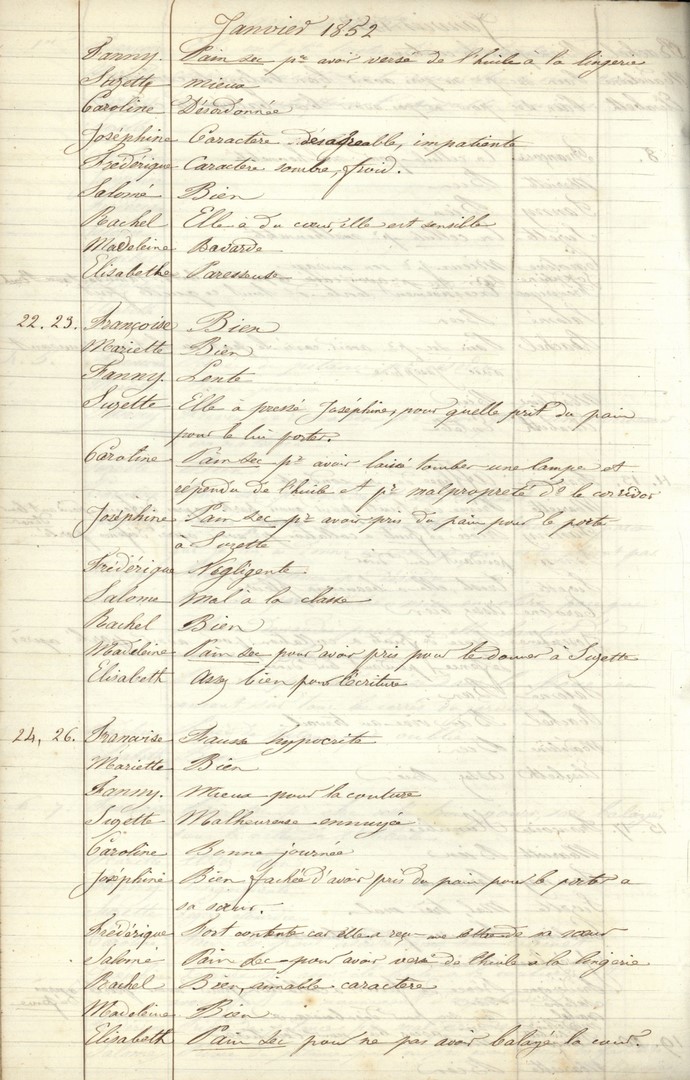 Janvier 1852
Fanny. Pain sec pr avoir versé de l'huile à la lingerie
Suzette mieux
Caroline Désordonnée
Joséphine Caractère désagreable, impatiente
Frédérique Caractere sombre, froid.
Salomé Bien
Rachel Elle à du cœur, elle est sensible
Madeleine Bavarde
Elisabethe Paresseuse
22. 23. Françoise Bien
Mariette Bien
Fanny. Lente
Suzette Elle à pressé Joséphine, pour quelle prit du pain
pour le lui porter.
Caroline Pain sec pr avoir laissé tomber une lampe et
répendu de l'huile et pr malpropreté ds le corridor
Joséphine Pain sec pr avoir pris du pain pour le porté
à Suzette
Frédérique Négligente.
Salome mal à la classe
Rachel Bien
Madeleine Pain sec pour avoir pris pour le donner à Suzette
Elisabeth Assez bien pour l'écriture
24, 26. Françoise Fausse hypocrite
Mariette Bien
Fanny. Mieux pour la couture
Suzette Malheureuse ennuyée
Caroline Bonne journée
Joséphine Bien fachée d'avoir pris du pain pour le porter a
sa sœur.
Frédérique Fort contente car elle a reçu une lettre de sa sœur
Salomé Pain sec pour avoir versé de l'huile à la lingerie
Rachel Bien, aimable caractere
Madeleine Bien
Elisabeth Pain sec pour ne pas avoir balayé la cour.